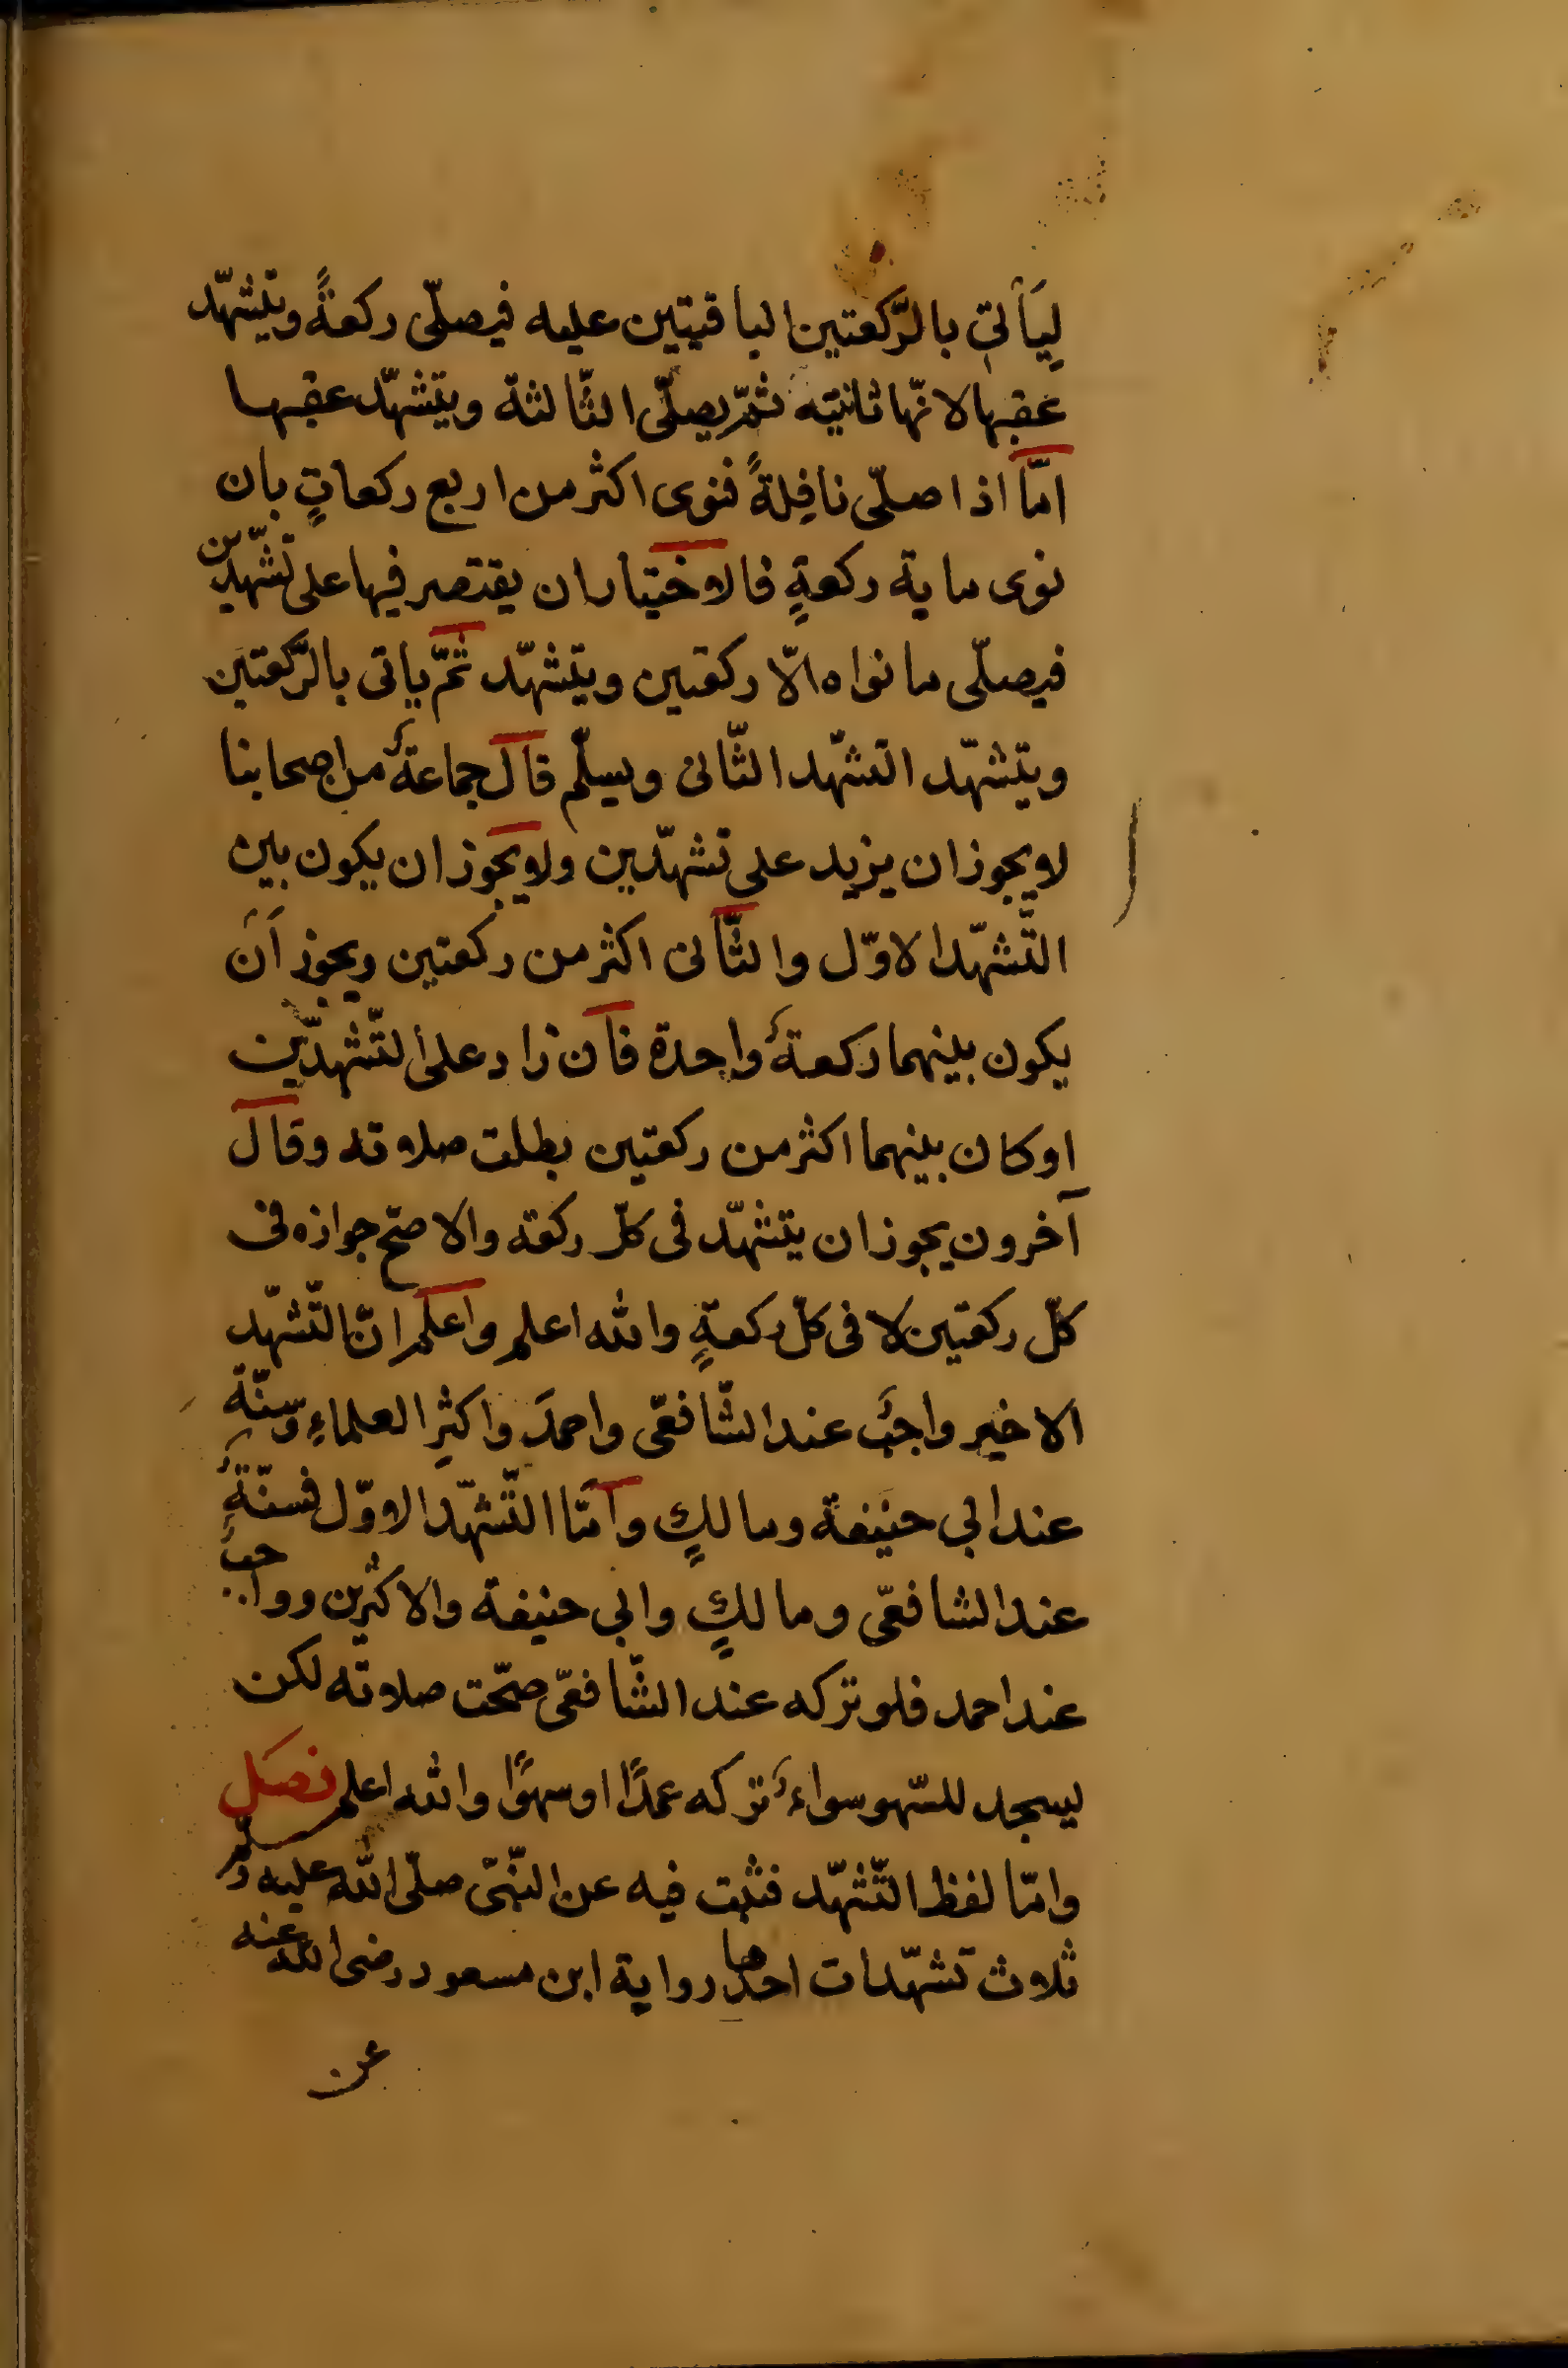 لِيَأتي بالرَّكعتين الباقيتين عليه فيصلّى ركعةً ويتشهّد
عقبها لانّها ثانيته ثمّ يصلّى الثّالثة ويتشهّد عقبها
امّا اذا صلّى نافِلةً فنوى اكثر من اربع ركعاتٍ بان
نوى ماية ركعةٍ فالاختيار ان يقتصر فيها على تشهّدين
فيصلّى ما نواه الّا ركعتين ويتشهّد ثمّ ياتى بالرَّكعتين
ويتشهّد التشهّد الثّانى ويسلّم قال جماعةٌ من اصحابنا
لا يجوز ان يزيد على تشهّدين ولا يجوز ان يكون بين
التَّشهّد الاوّل والثّانى اكثر من ركعتين ويجوز اَن
يكون بينهما ركعةٌ واحدة فان زاد على التّشهدّين
او كان بينهما اكثر من ركعتين بطلت صلاته وقال
آخرون يجوز ان يتشهّد فى كلّ ركعة والاصحّ جوازه فى
كلّ ركعتين لا فى كلّ ركعةٍ والله اعلم واعلم انّ التّشهّد
الاخير واجبٌ عند الشّافعّى واحمدَ واكثرِ العلماءِ وسنّة
عند ابى حنيفة ومالكٍ وامّا التّشهّد الاوّل فسنّةٌ
عند الشافعّى ومالكٍ وابى حنيفة والاكثرين وواجبٌ
عند احمد فلو تركه عند الشّافعّى صحّت صلاته لكن
يسجد للسّهو سواءٌ تركه عمدًا او سهوًا والله اعلم فصل
وامّا لفظ التّشهّد فثبت فيه عن النّبىّ صلّى الله عليه وسلّم
ثلاث تشهّدات احدها رواية ابن مسعود رضى الله عنه
عن